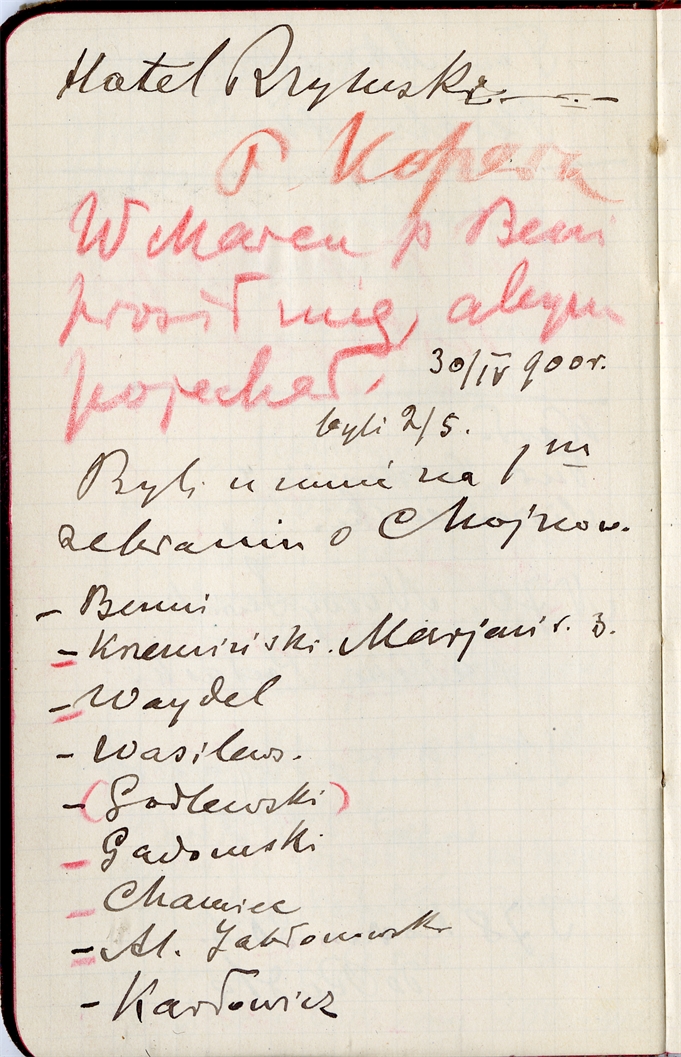 Hotel Rzymski
P. Kopera
W Marcu p Beni
prosił mię, abym
pojechał,
30/IV 900r.
byli 2/5.
Byli u mnie na 1m
zebraniu o Chojnow.
- Benni
- Krzemiński. Marjan r. 3.
- Waydel
- Wasilews.
- (Godlewski)
- Gadomski
- Chamiec
- Al. Jabłonowski
- Karłowicz